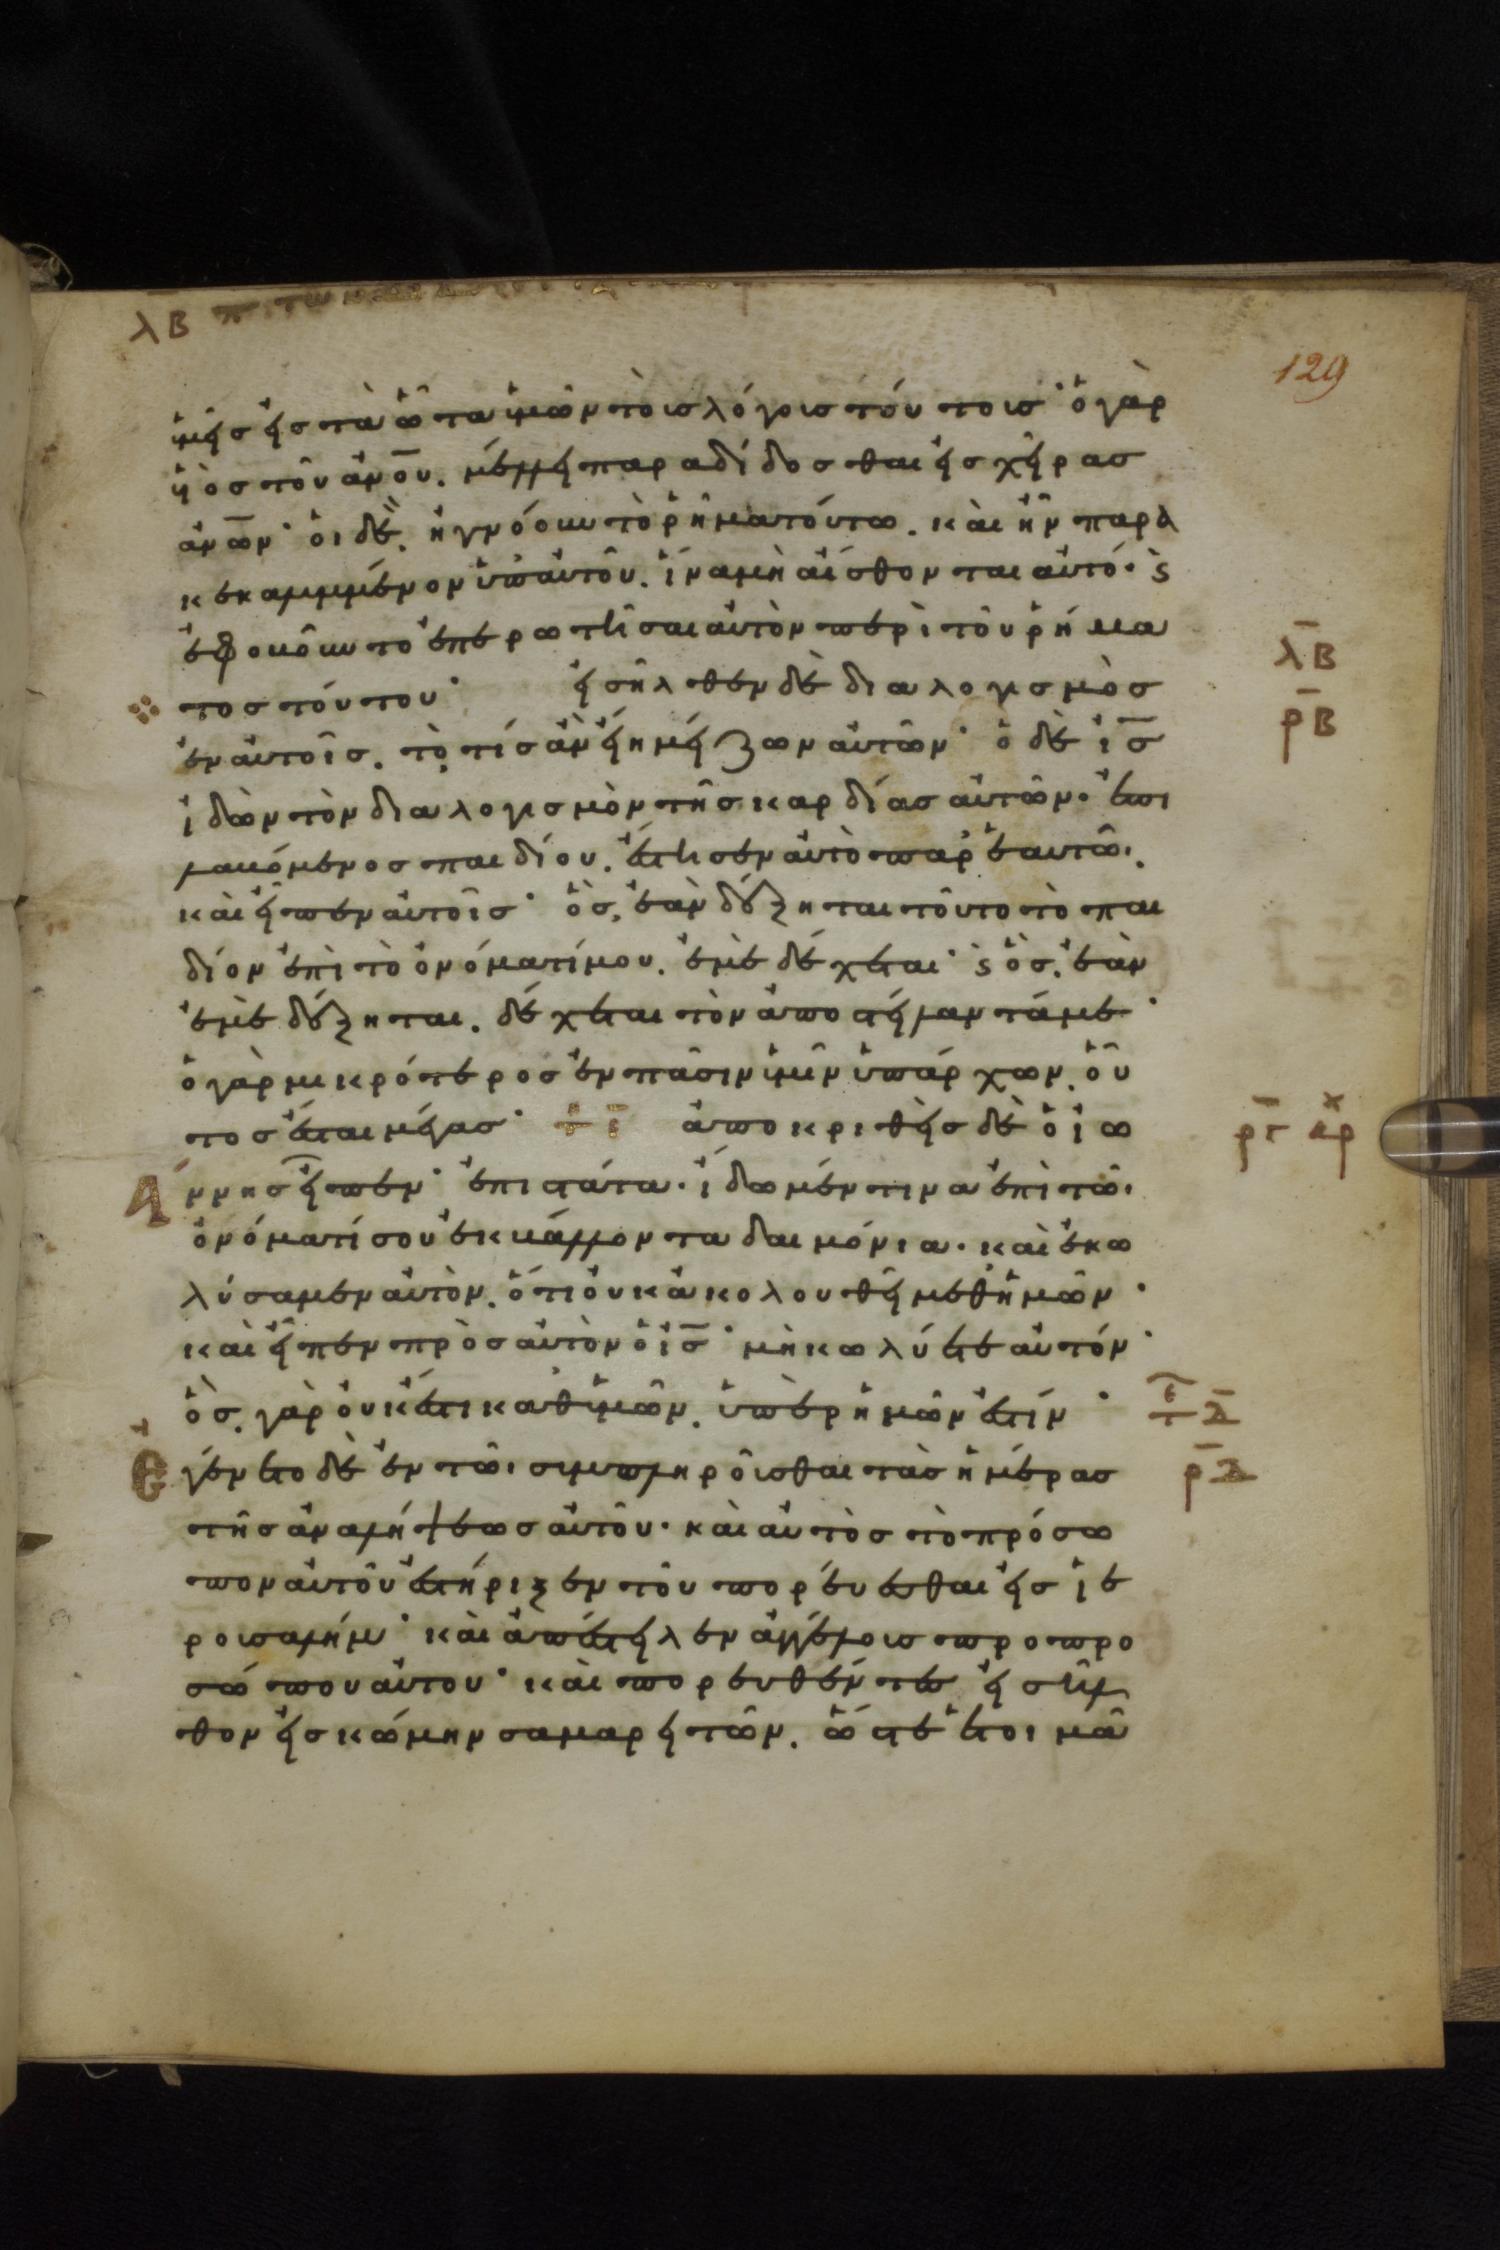 λβ
129
ὑμεῖς εἰς τὰ ὦτα ὑμῶν τοὺς λόγους τούτους· ὁ γὰρ
υἱὸς τοῦ ἀν̅ο̅υ̅. μέλλει παραδίδοσθαι εἰς χεῖρας
ἀν̅ω̅ν̅· οἱ δὲ, ἠγνόουν τὸ ῥῆμα τοῦτο. καὶ ἦν παρα
κεκαλυμμένον ὑπ' αὐτοῦ. ἵνα μὴ αἴσθονται αὐτό· ϛ
ἐφοβοῦντο ἐπερωτῆσαι αὐτὸν περὶ τοῦ ῥήμα
τος τούτου· εἰσῆλθεν δὲ διαλογισμὸς
ἐν αὐτοῖς. τὸ, τίς ἂν εἴη μείζων αὐτῶν· ὁ δὲ ἰ̅σ̅
ἰδὼν τὸν διαλογισμὸν τῆς καρδίας αὐτῶν· ἐπι
λαβόμενος παιδίου. ἔστησεν αὐτὸ παρ' ἑαυτῶι.
καὶ εἶπεν αὐτοῖς· ὃς, ἐὰν δέξηται τοῦτο τὸ παι
δίον ἐπὶ τὸ ὀνόματί μου. ἐμὲ δέχεται· ϛ ὃς. ἐὰν
ἐμὲ δέξηται. δέχεται τὸν ἀποστείλαντά με·
ὁ γὰρ μικρότερος ἐν πᾶσιν ὑμῖν ὑπάρχων, οὗ
τος ἔσται μέγας· ἀποκριθεὶς δὲ ὁ ἰω
άννης εἶπεν· ἐπιστάτα· ἴδωμέν τινα ἐπὶ τῶι
ὀνόματί σου ἐκβάλλοντα δαιμόνια· καὶ ἐκω
λύσαμεν αὐτὸν. ὅτι οὐκ ἀκολουθεῖ μεθ' ἡμῶν·
καὶ εἶπεν πρὸς αὐτὸν ὁ ἰ̅σ̅· μὴ κωλύετε αὐτόν·
ὃς, γὰρ οὐκ ἔστι καθ' ὑμῶν, ὑπὲρ ἡμῶν ἐστίν·
Ἐγένετο δὲ ἐν τῶι συμπληροῦσθαι τὰς ἡμέρας
τῆς ἀναλήψεως αὐτοῦ· καὶ αὐτὸς τὸ πρόσω
πον αὐτοῦ ἐστήριξεν τοῦ πορεύεσθαι εἰς ἱε
ρουσαλήμ· καὶ ἀπέστειλεν ἀγγέλους πρὸ προ
σώπου αὐτοῦ· καὶ πορευθέντες εἰσῆλ
θον εἰς κώμην σαμαρειτῶν. ὥστε ἑτοιμᾶ
λ̅β
ρ̅β
ρ̅γ
ρ̅δ